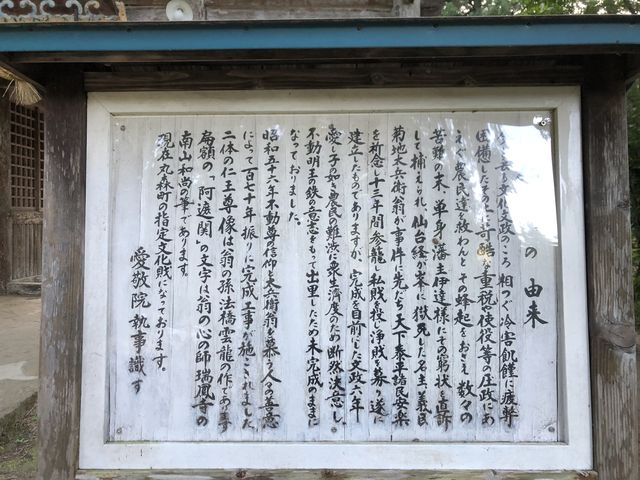 の由来
文化文政のころ相つぐ冷害飢饉に疲弊
困憊したその上に苛酷な重税や使役等の圧政にあ
えぐ農民達を救わんとその蜂起をおさえ数々の
苦難の末単身藩主伊達様にその窮状を直訴
して捕えられ仙台経が峯に獄死した名主、義民
菊地太兵衛翁が事件に先だち天下泰平諸民安楽
を祈念し十三年間参籠し私財を投じ浄財を募り遂に
建立したものでありますが、完成を目前にした文政六年
愛し子の如き農民の難渋に衆生済度のため断然決意し
不動明王の鉄の意志をもって出里したため未完成のままに
なっておりました。
昭和五十六年不動尊の信仰と太兵衛翁を慕う人々の善意
によって百七十年振りに完成工事が施こされました
二体の仁王尊像は翁の孫法橋雲龍の作であり
扁額の"阿遮関"の文字は翁の心の師瑞鳳寺の
南山和尚の筆であります。
現在丸森町の指定文化財になっております。
愛敬院執事識す